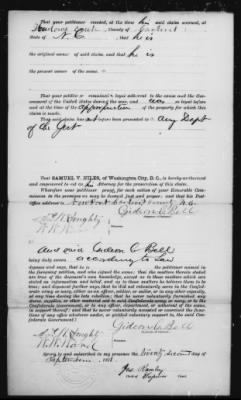 That your petitioner resided, at the time his said claim accrued, at
county of Carteret
State of N.C. that he is
the original owner of said claim, and that he is
the present owner of the same.
That your petitioner remained loyal adherent to the cause and the Gov-
ernment of the United States during the war; and was so loyal before
and at the time of the appropriation of the property for which
this claim is made.
That said claim has not before been presented to any Dept
of the Govt
That SAMUEL V. NILES, of Washington City, D. C., is hereby authorized
and empowered to act as his Attorney for the prosecution of this claim.
Wherefore your petitioner prays, for such action of your Honorable Com-
mission in the premises as may be deemed just and proper; and that his Post-
Office address is Newport Carteret county N.C.
Gideon C Bell
Signature of Petitioner.
And said Gideon C Bell
being duly sworn according to law
deposes and says, that he is the petitioner named in the
foregoing petition, and who signed the same; that the matters therein stated
are true of the deponent's own knowledge, except as to those matters which are
stated on information and belief, and as to those matters he believes them to be
true; and deponent further says, that he did not voluntarily serve in the Confed-
erate army or navy, either as an officer, soldier, or sailor, or in any other capacity,
at any time during the late rebellion; that he never voluntarily furnished any
stores, supplies, or other material aid to said Confederate army or navy, or to the
Confederate government, or to any officer, department, or adherent of the same,
in support thereof; and that he never voluntarily accepted or exercised the func-
tions of any office whatever under, or yielded voluntary support to, the said Con-
federate Government.
Gideon C Bell
Signature of Petitioner.
Sworn to and subscribed in my presence the Twenty second day of
September, 187